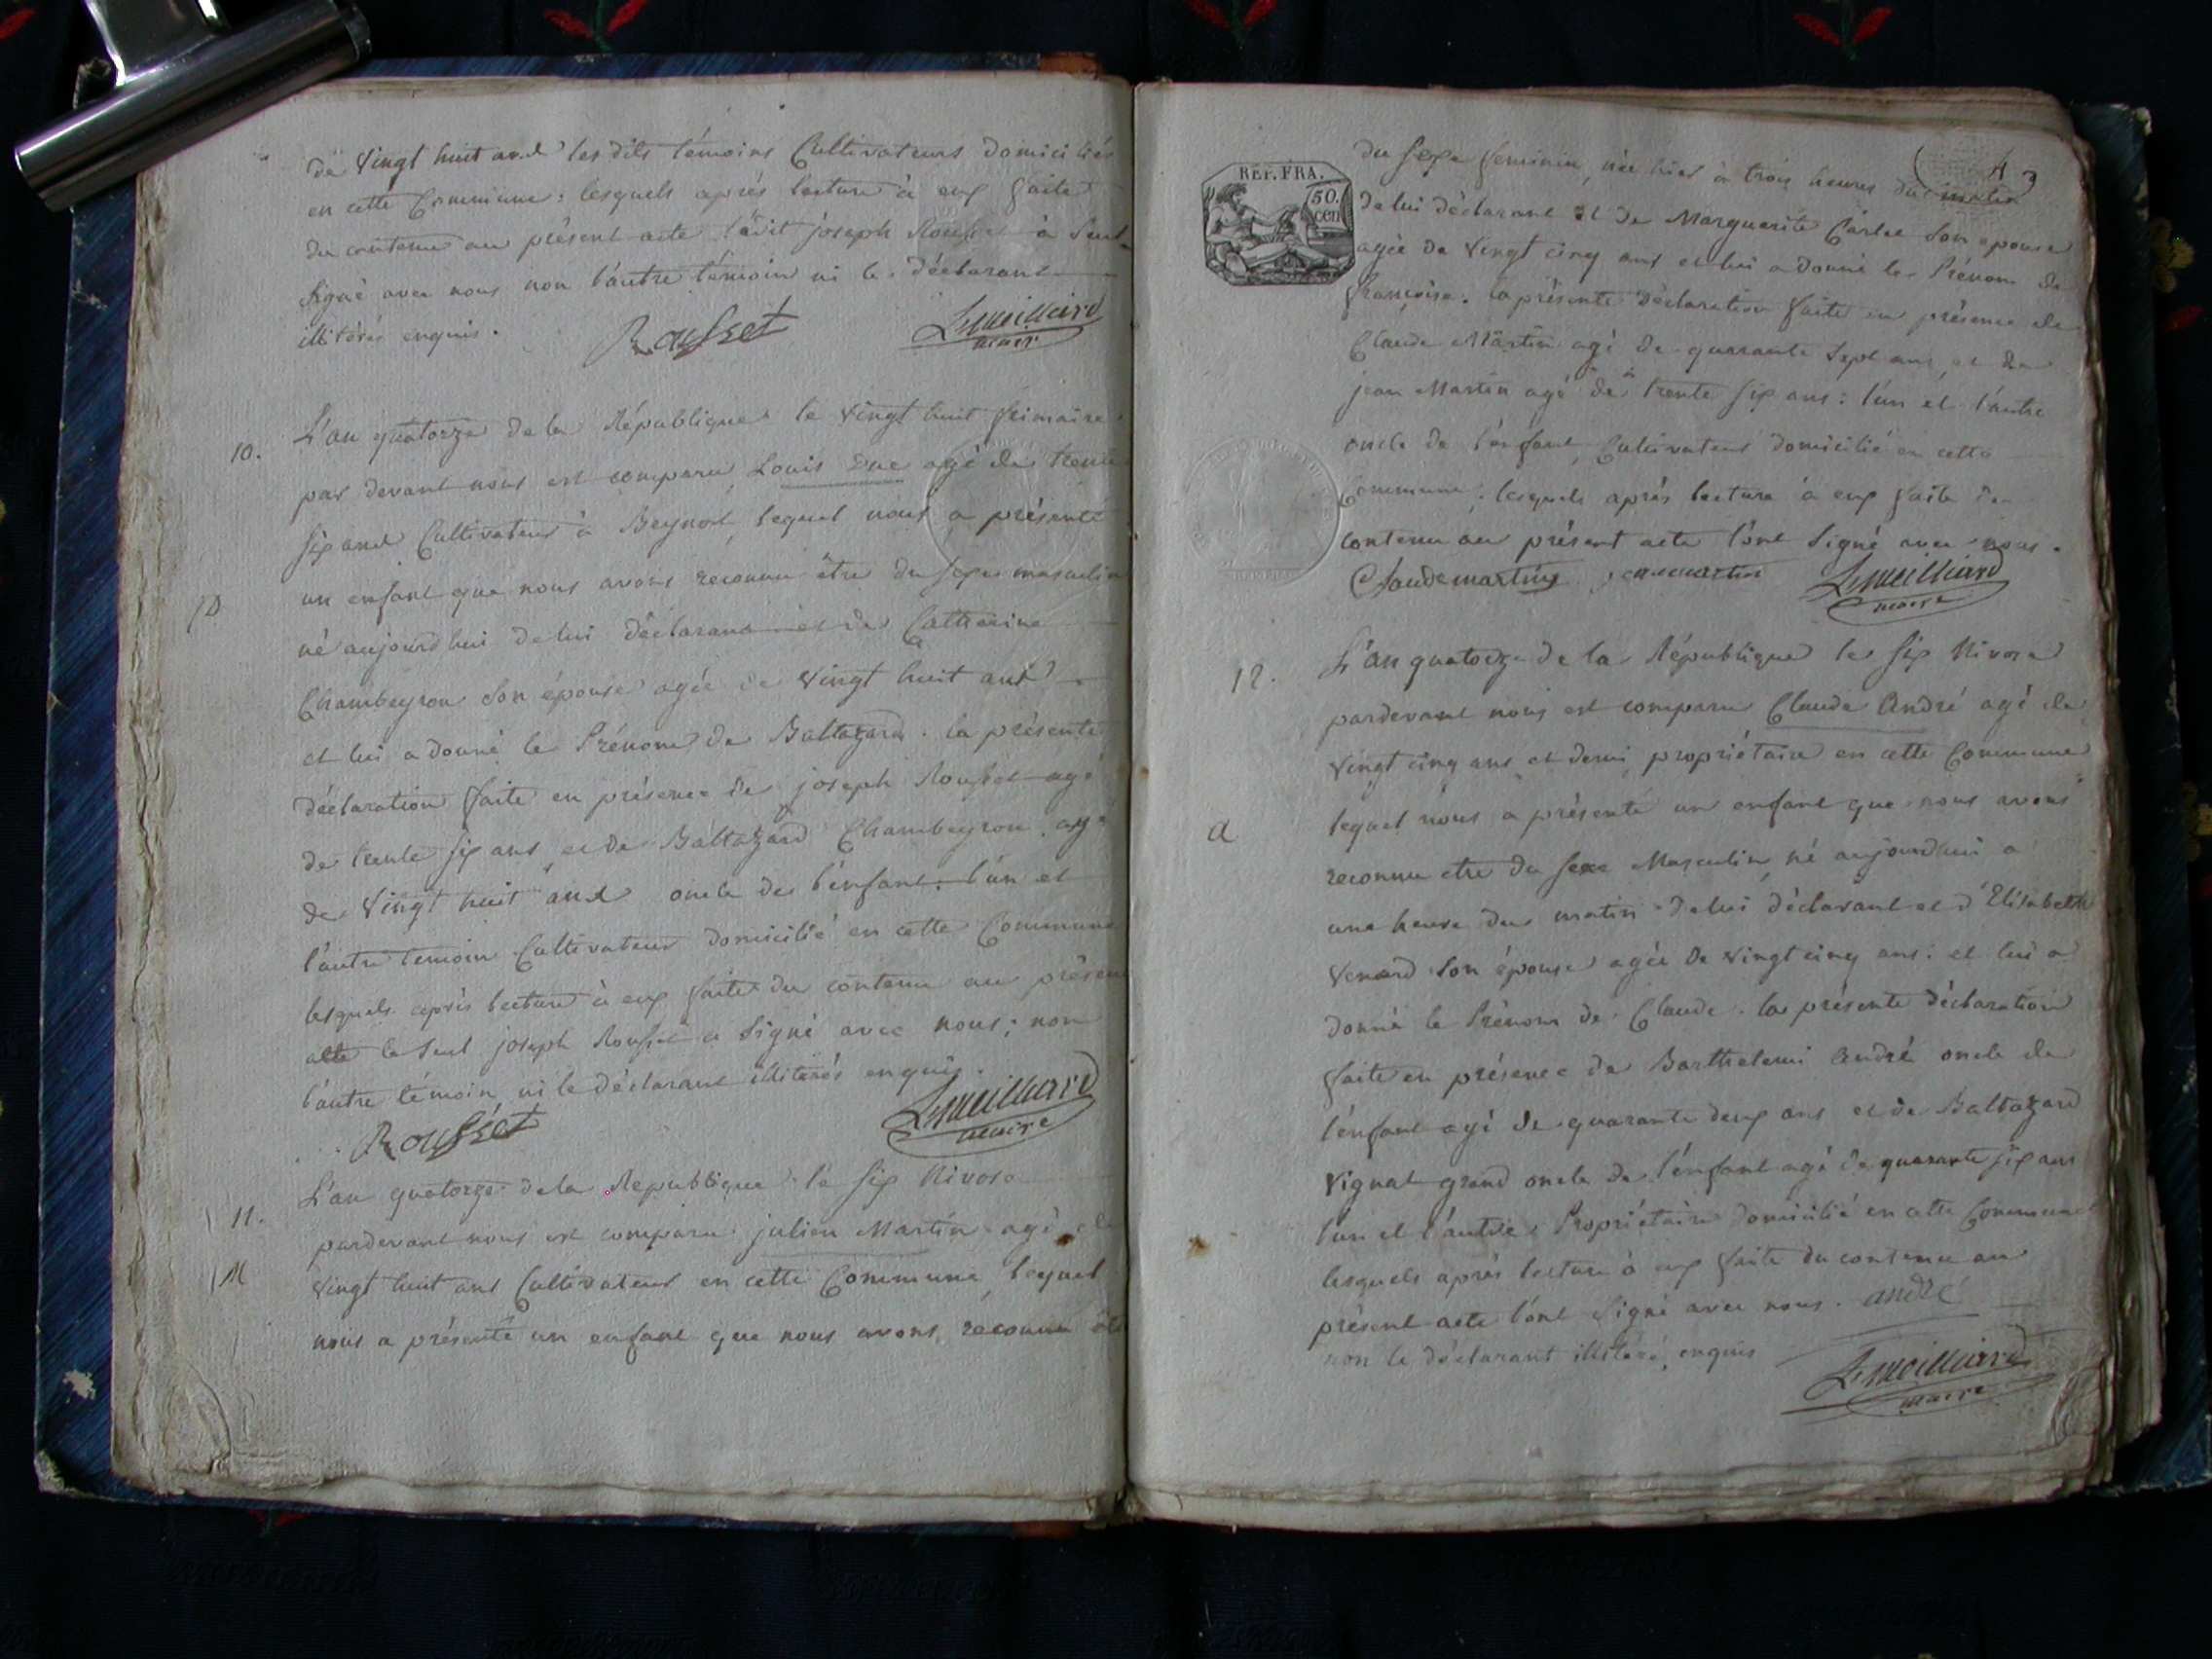 de vingt huit ans les dits témoins Cultivateurs domiciliés
en cette Commune: lesquels après lecture à eux faite
du contenu au présent acte ledit joseph Rousset a seul
signé avec nous non l'autre témoin ni le déclarant
illitérés enquis.
Rousset Lemeilliard
maire
10. L'an quatorze de la République le vingt huit frimaire
par devant nous est comparu Louis Duc agé de trente
six ans Cultivateur à Beynost, lequel nous a présenté
un enfant que nous avons reconnu être du sexe masculin
D
né aujourdhui de lui déclarant et de Catherine
Chambeyron son épouse agée de vingt huit ans
et lui a donné le Prénom de Baltazard. la présente
déclaration faite en présence de joseph Rousset agé
de trente six ans et de Baltazard Chambeyron agé
de vingt huit ans oncle de l'enfant. l'un et
l'autre temoin Cultivateur domicilié en cette Commune
lesquels après lecture à eux faite du contenu au présent
acte le seul joseph Rousset a signé avec nous; non
l'autre témoin, ni le déclarant illitérés enquis.
Rousset Lemeilliard
maire
11. L'an quatorze de la Republique le six Nivose
pardevant nous est comparu julien Martin agé de
M vingt huit ans Cultivateur en cette Commune, lequel
nous a présenté un enfant que nous avons reconnu être
REP. FRA.
50.
cen
du sexe feminin, née hier à trois heures du matin
de lui déclarant et de Marguerite Carlet son epouse
agée de vingt cinq ans et lui a donné le Prénom de
françoise. la présente déclaration faite en présence de
Claude Martin agé de quarante sept ans, et de
jean Martin agé de trente six ans: l'un et l'autre
oncle de l'enfant, Cultivateur domicilié en cette
Commune; lesquels après lecture à eux faite du
contenu au présent acte l'ont signé avec nous.
Claude martin jean martin Lemeilliard
maire
12. L'an quatorze de la République le six Nivose
pardevant nous est comparu Claude André agé de
vingt cinq ans et demi, propriétaire en cette Commune
lequel nous a présenté un enfant que nous avons
a
reconnu etre du sexe Masculin, né aujourdhui a
une heure du matin de lui déclarant et d'Elisabeth
Venard son épouse agée de vingt cinq ans: et lui a
donné le Prénom de Claude. la présente déclaration
faite en présence de Barthelemi André oncle de
l'enfant agé de quarante deux ans et de Baltazard
Vignat grand oncle de l'enfant agé de quarante six ans
l'un et l'autre Propriétaire domicilié en cette Commune
lesquels après lecture à eux faite du contenu au
présent acte l'ont signé avec nous. andré
non le déclarant illitéré, enquis
Lemeilliard
maire